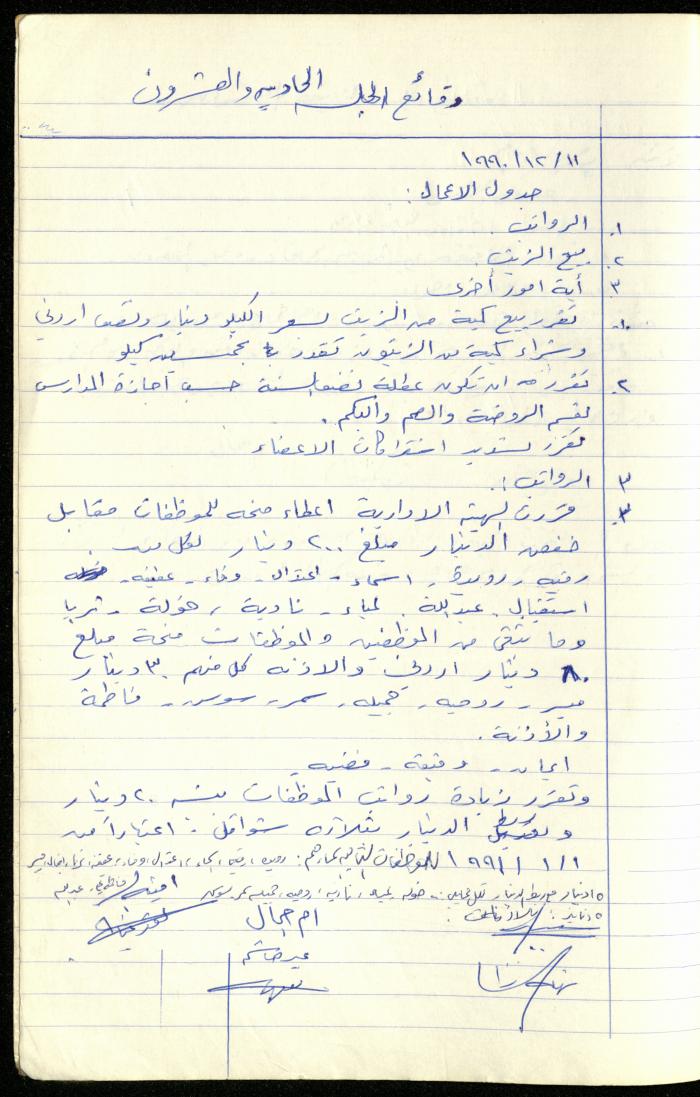 وقائع الجلسه الحاديه والعشرون
١٩٩٠/١٢/١١
جدول الاعمال :
١. الرواتب .
٢. بيع الزيت .
٣. أية امور أخرى
١. تقرر بيع كمية من الزيت بسعر الكيلو دينار ونصف اردني
وشراء كمية من الزيتون تقدر بخمسين كيلو
٢. تقرر ان تكون عطلة نصف السنة حسب اجازة المدارس
لقسم الروضة والصم والبكم .
تقرر تسديد اشتراكات الاعضاء
٣ الرواتب :
٣. قررت الهيئه الادارية اعطاء منحه للموظفات مقابل
خفض الدينار مبلغ ٢٠٠ دينار لكل من :
رقيه - رويدة - اسماء - اعتدال - وفاء - عفيفه -
استقبال - عبدالله - لمياء - نادية ، خولة - ثريا
وما تبقى من الموظفين والموظفات منحة مبلغ
٨٠ دينار اردني والاذنه كل منهم ٣٠ دينار
عبير - روحيه - جميله - سمر - سوسن - فاطمة
والأذنة .
ايمان - وفيقة - فضيه
وتقرر زيادة رواتب الموظفات بنسبه ٢٠ دينار
وربط الدينار بثلاثه شواقل . اعتباراً من
١٩٩١/١/١ للموظفات التاليه اسماءهم : رويده ، رقيه ، اسماء ، اعتدال ، وفاء ، عفيفه
١٥ دينار مع ربط الدينار : خوله ، لمياء ، ناديه ، روحيه ، جميله ، سمر ، سوسن
٥ دنانير :
ام جمال
عبير هاشم